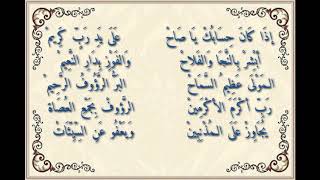 إِذَا كَانَ حِسَابُكْ يَا صَاحْ عَلَى يَدِ رَبٍ كَرِيمْ
أَبْشِرْ بِالنَّجَا وَالفَلَاحْ وَالفَوْزِ بِدَارِ النَّعِيمْ
المَوْلَى عَظِيمُ السَّمَاحْ البَرُّ الرَّؤُوفُ الرَّحِيمْ
رَبِّ أَكْرَمَ الأَكْرَمِينْ الرَّؤُوفْ بِجَمْعِ العُصَاةْ
يُجَاوِزْ عَلَى المُذْنِبِينْ وَيَعْفُو عَنِ السَّيِّئَاتْ